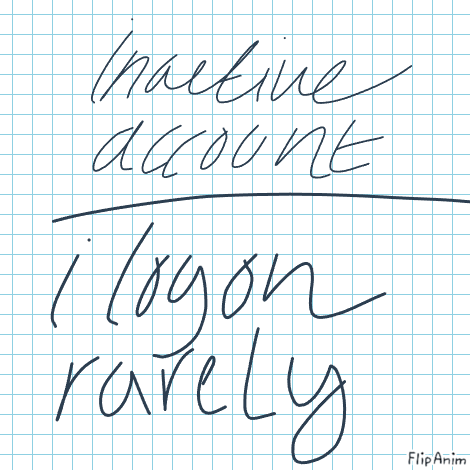 Inactive
account
i logon
rarely
FlipAnim